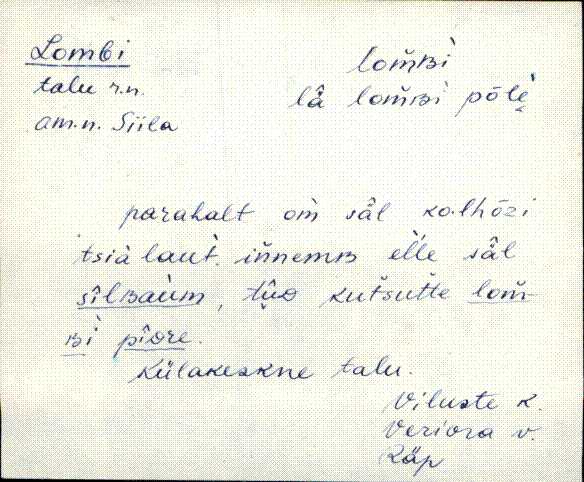 Lombi
talu r.n.
am.n. Siila
lom̆ʙì
lâ lom̆ʙì pōlè̬
parahalt om̀ sâl ko.lhōzi
tsiàlaut̀. iñnemʙ elle sâl
sîlʙaùm, tû̬o kut̆sut̆te lom̆-
ʙì pîore.
Külakeskne talu.
Viluste k.
Veriora v.
Räp